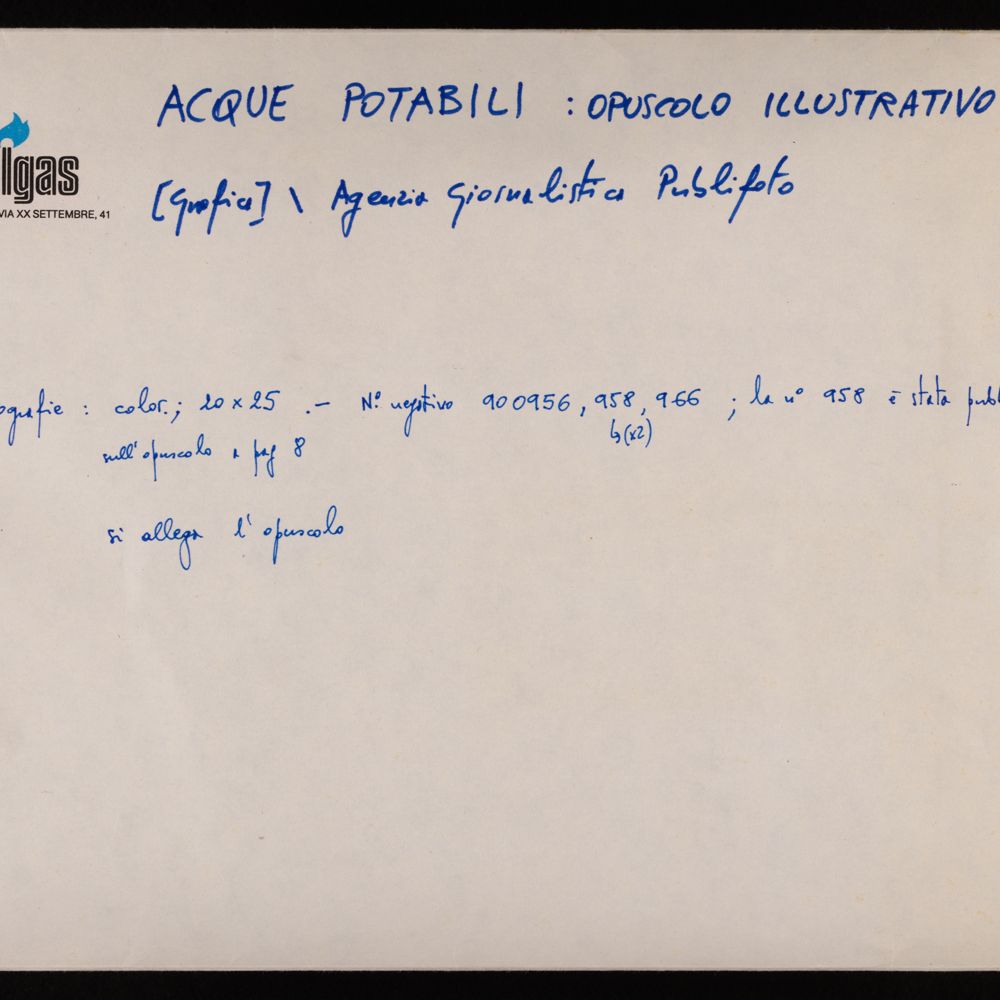 ACQUE POTABILI : OPUSCOLO ILLUSTRATIVO
lgas
VIA XX SETTEMBRE, 41
[Grafica] \ Agenzia Giornalistica Publifoto
ografie : color.; 20 x 25 .- N.º negativo 900956, 958, 966 ; la nº 958 è stata publ
(x2)
sull'opuscolo a pag 8
si allega l'opuscolo